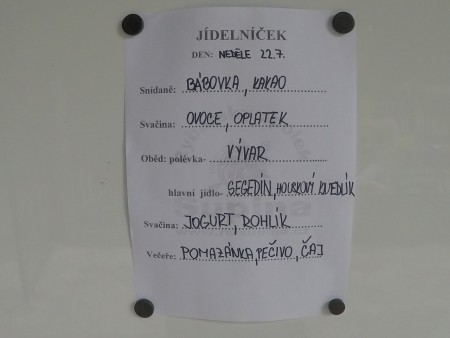 JÍDELNÍČEK
DEN: NEDĚLE 22.7.
Snídaně: BÁBOVKA, KAKAO
Svačina: OVOCE, OPLATEK
Oběd: polévka- VÝVAR
hlavní jídlo- SEGEDÍN, HOUSKOVÝ KNEDLÍK
Svačina: JOGURT, ROHLÍK
Večeře: POMAZÁNKA, PEČIVO, ČAJ